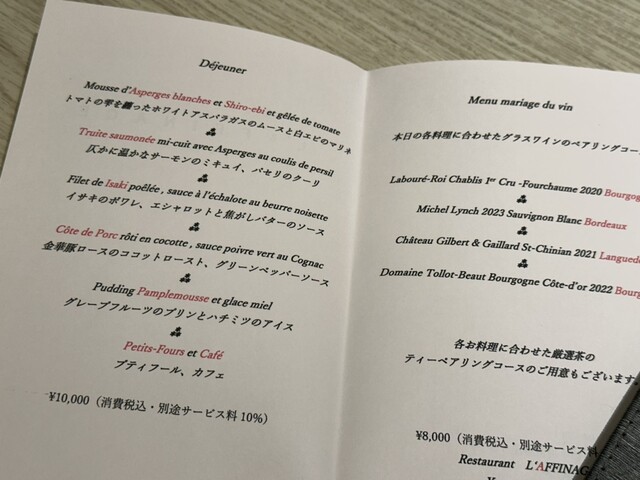 Déjeuner
Mousse d'Asperges blanches et Shiro-ebi et gêlée de tomate
トマトの雫を纏ったホワイトアスパラガスのムースと白エビのマリネ
Truite saumonée mi-cuit avec Asperges au coulis de persil
仄かに温かなサーモンのミキュイ、パセリのクーリ
Filet de Isaki poêlée , sauce à l'échalote au beurre noisette
イサキのポワレ、エシャロットと焦がしバターのソース
Côte de Porc rôti en cocotte , sauce poivre vert au Cognac
金華豚ロースのココットロースト、グリーンペッパーソース
Pudding Pamplemousse et glace miel
グレープフルーツのプリンとハチミツのアイス
Petits-Fours et Café
プティフール、カフェ
¥10,000（消費税込・別途サービス料 10%）
Menu mariage du vin
本日の各料理に合わせたグラスワインのペアリングコー
Labouré-Roi Chablis 1er Cru -Fourchaume 2020 Bourgog
Michel Lynch 2023 Sauvignon Blanc Bordeaux
Château Gilbert & Gaillard St-Chinian 2021 Langued
Domaine Tollot-Beaut Bourgogne Côte-d'or 2022 Bourg
各お料理に合わせた厳選茶の
ティーペアリングコースのご用意もございます
¥8,000（消費税込・別途サービス料
Restaurant L'AFFINAG